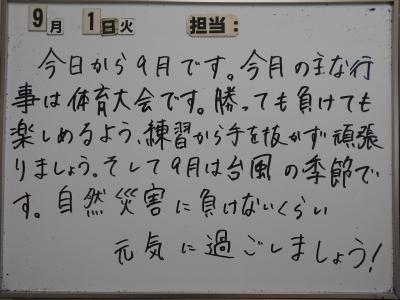 9月 1日火 担当:
今日から9月です。今月の主な行
事は体育大会です。勝っても負けても
楽しめるよう、練習から手を抜かず頑張
りましょう。そして9月は台風の季節で
す。自然災害に負けないくらい
元気に過ごしましょう!